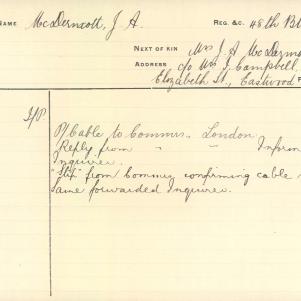 NAME McDermott, J. A. REG. &C. 48th Bt
NEXT OF KIN Mrs J. A. McDermo
ADDRESS c/o Mrs J. Campbell,
Elizabeth St., Eastwood
O/Cable to Commrs. London
Reply from " " Inform
Inquirer.
"Slip" from Commrs confirming cable
Same forwarded Inquirer.